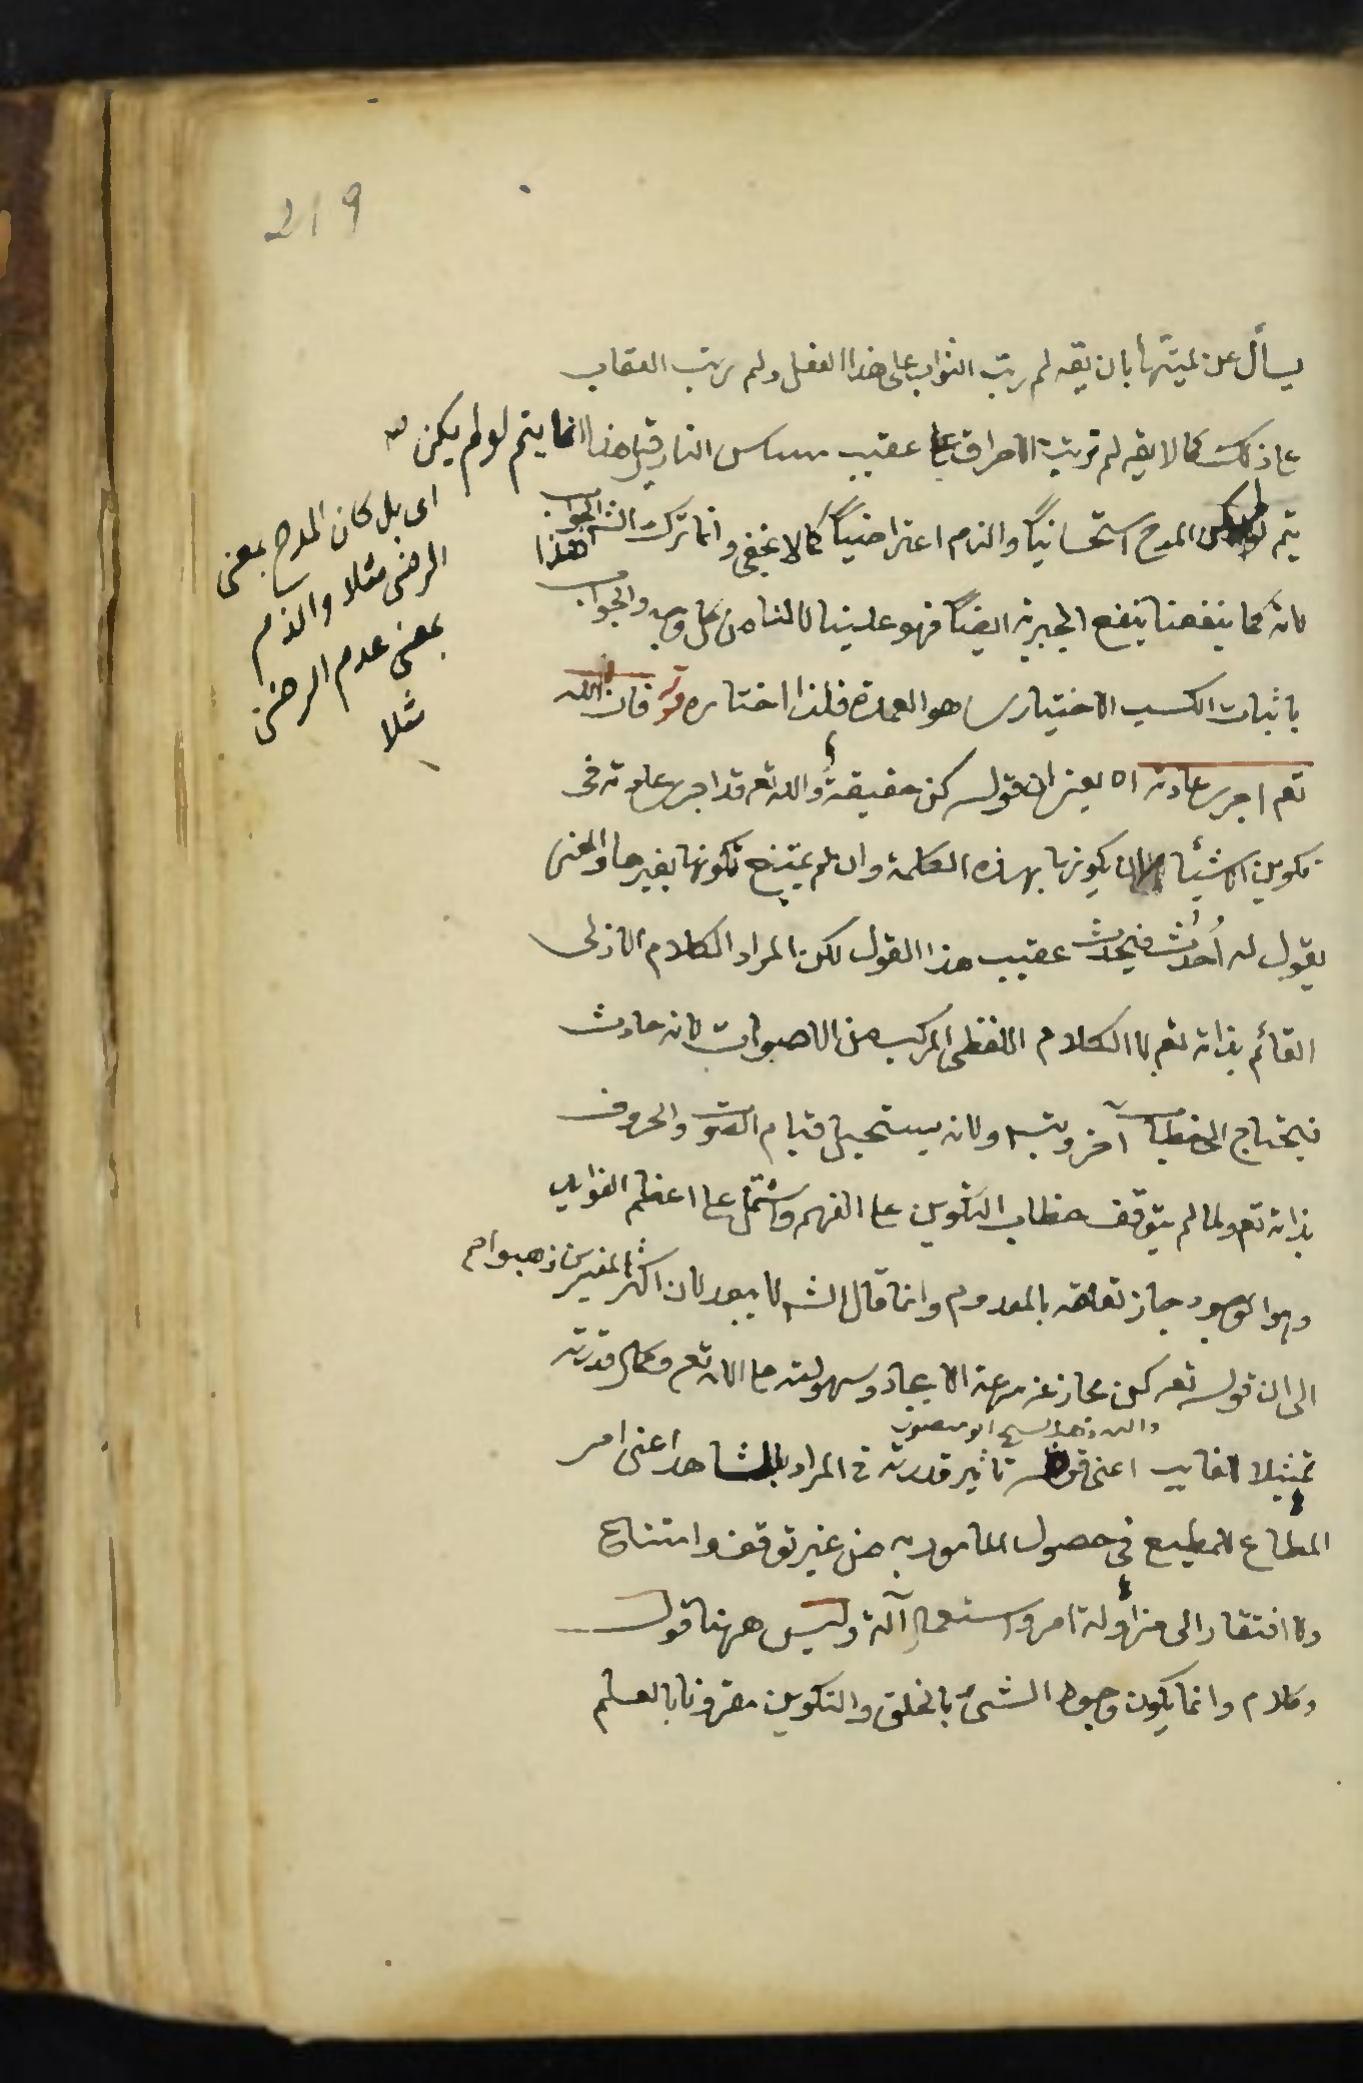 219
يسأل عن لميتها بان يقه لم رتب الثواب على هذا الفعل ولم يرتب العقاب
على ذلك كما لا يقه لم ترتيب الاحراق على عقيب مساس النار قيل هذا انما يتم لو لم يكن
يتم المدح استحسانياً والذم اعتراضياً كما لا يخفى وانما ترك الش الجواب هذا
لانه كما ينفعنا ينفع الجبرية ايضاً فهو علينا لا لنا من كل وجه والجواب
باثبات الكسب الاختياري هو العمدة فلذا اختاره قوله فان الله
تعم اجرى عادته اه يعني ان قوله كن حقيقةً والله تعم قد اجرى عادته في
تكوين الاشيأ ان يكونها بهذه الكلمة وان لم يمتنع تكونها بغيرها والمعنى
يقول له اُحدث فيحدث عقيب هذا القول لكن المراد الكلام الازلى
القائم بذاته تعم لا الكلام اللفظى المركب من الاصوات لانه حادث
فيحتاج الى خطاب آخر ويتس ولانه يستحيل قيام الصوت والحروف
بذاته تعم ولما لم يتوقف خطاب التكوين على الفهم واشتمل على اعظم الفوايد
وهو الوجود جاز تعلقه بالمعدوم وانما قال الش لا يبعد لان اكثر المفسرين ذهبوا
الى ان قوله تعم كن مجاز عن سرعة الايجاد وسهولته على الله تعم وكمال قدرته
تمثيلا للغايب اعنى تاثير قدرته في المراد بالشاهد اعنى امر
المطاع للمطيع في حصول المامور به من غير توقف وامتناع
ولا افتقار الى مزاولة امر واستعمال آلة وليس ههنا قول
وكلام وانما يكون وجود الشئ بالخلق والتكوين مقرونا بالعلم
اى بل كان المدح بمعنى
الرضى مثلا والذم
بمعنى عدم الرضى
مثلا